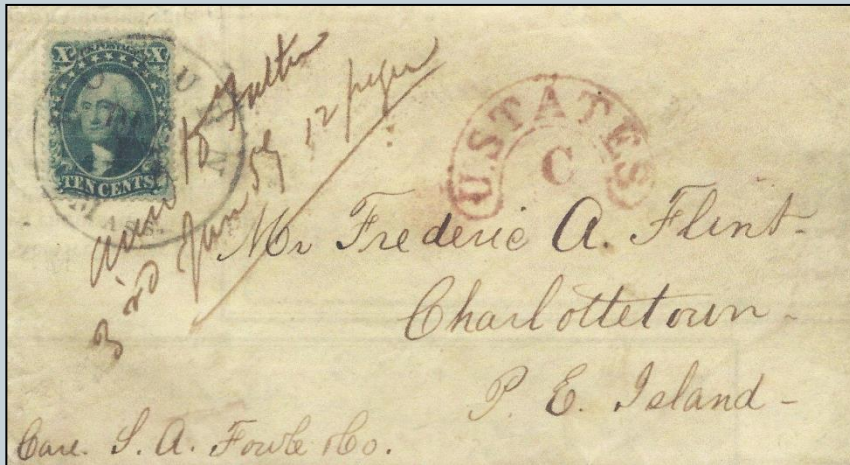 X U.S. POSTAGE X
TEN CENTS
WOBURN
MASS
3rd Jan 59 12 pages
U.STATES
C
Mr Frederic A. Flint.
Charlottetown.
P. E. Island -
Care. S. A. Fowle & Co.